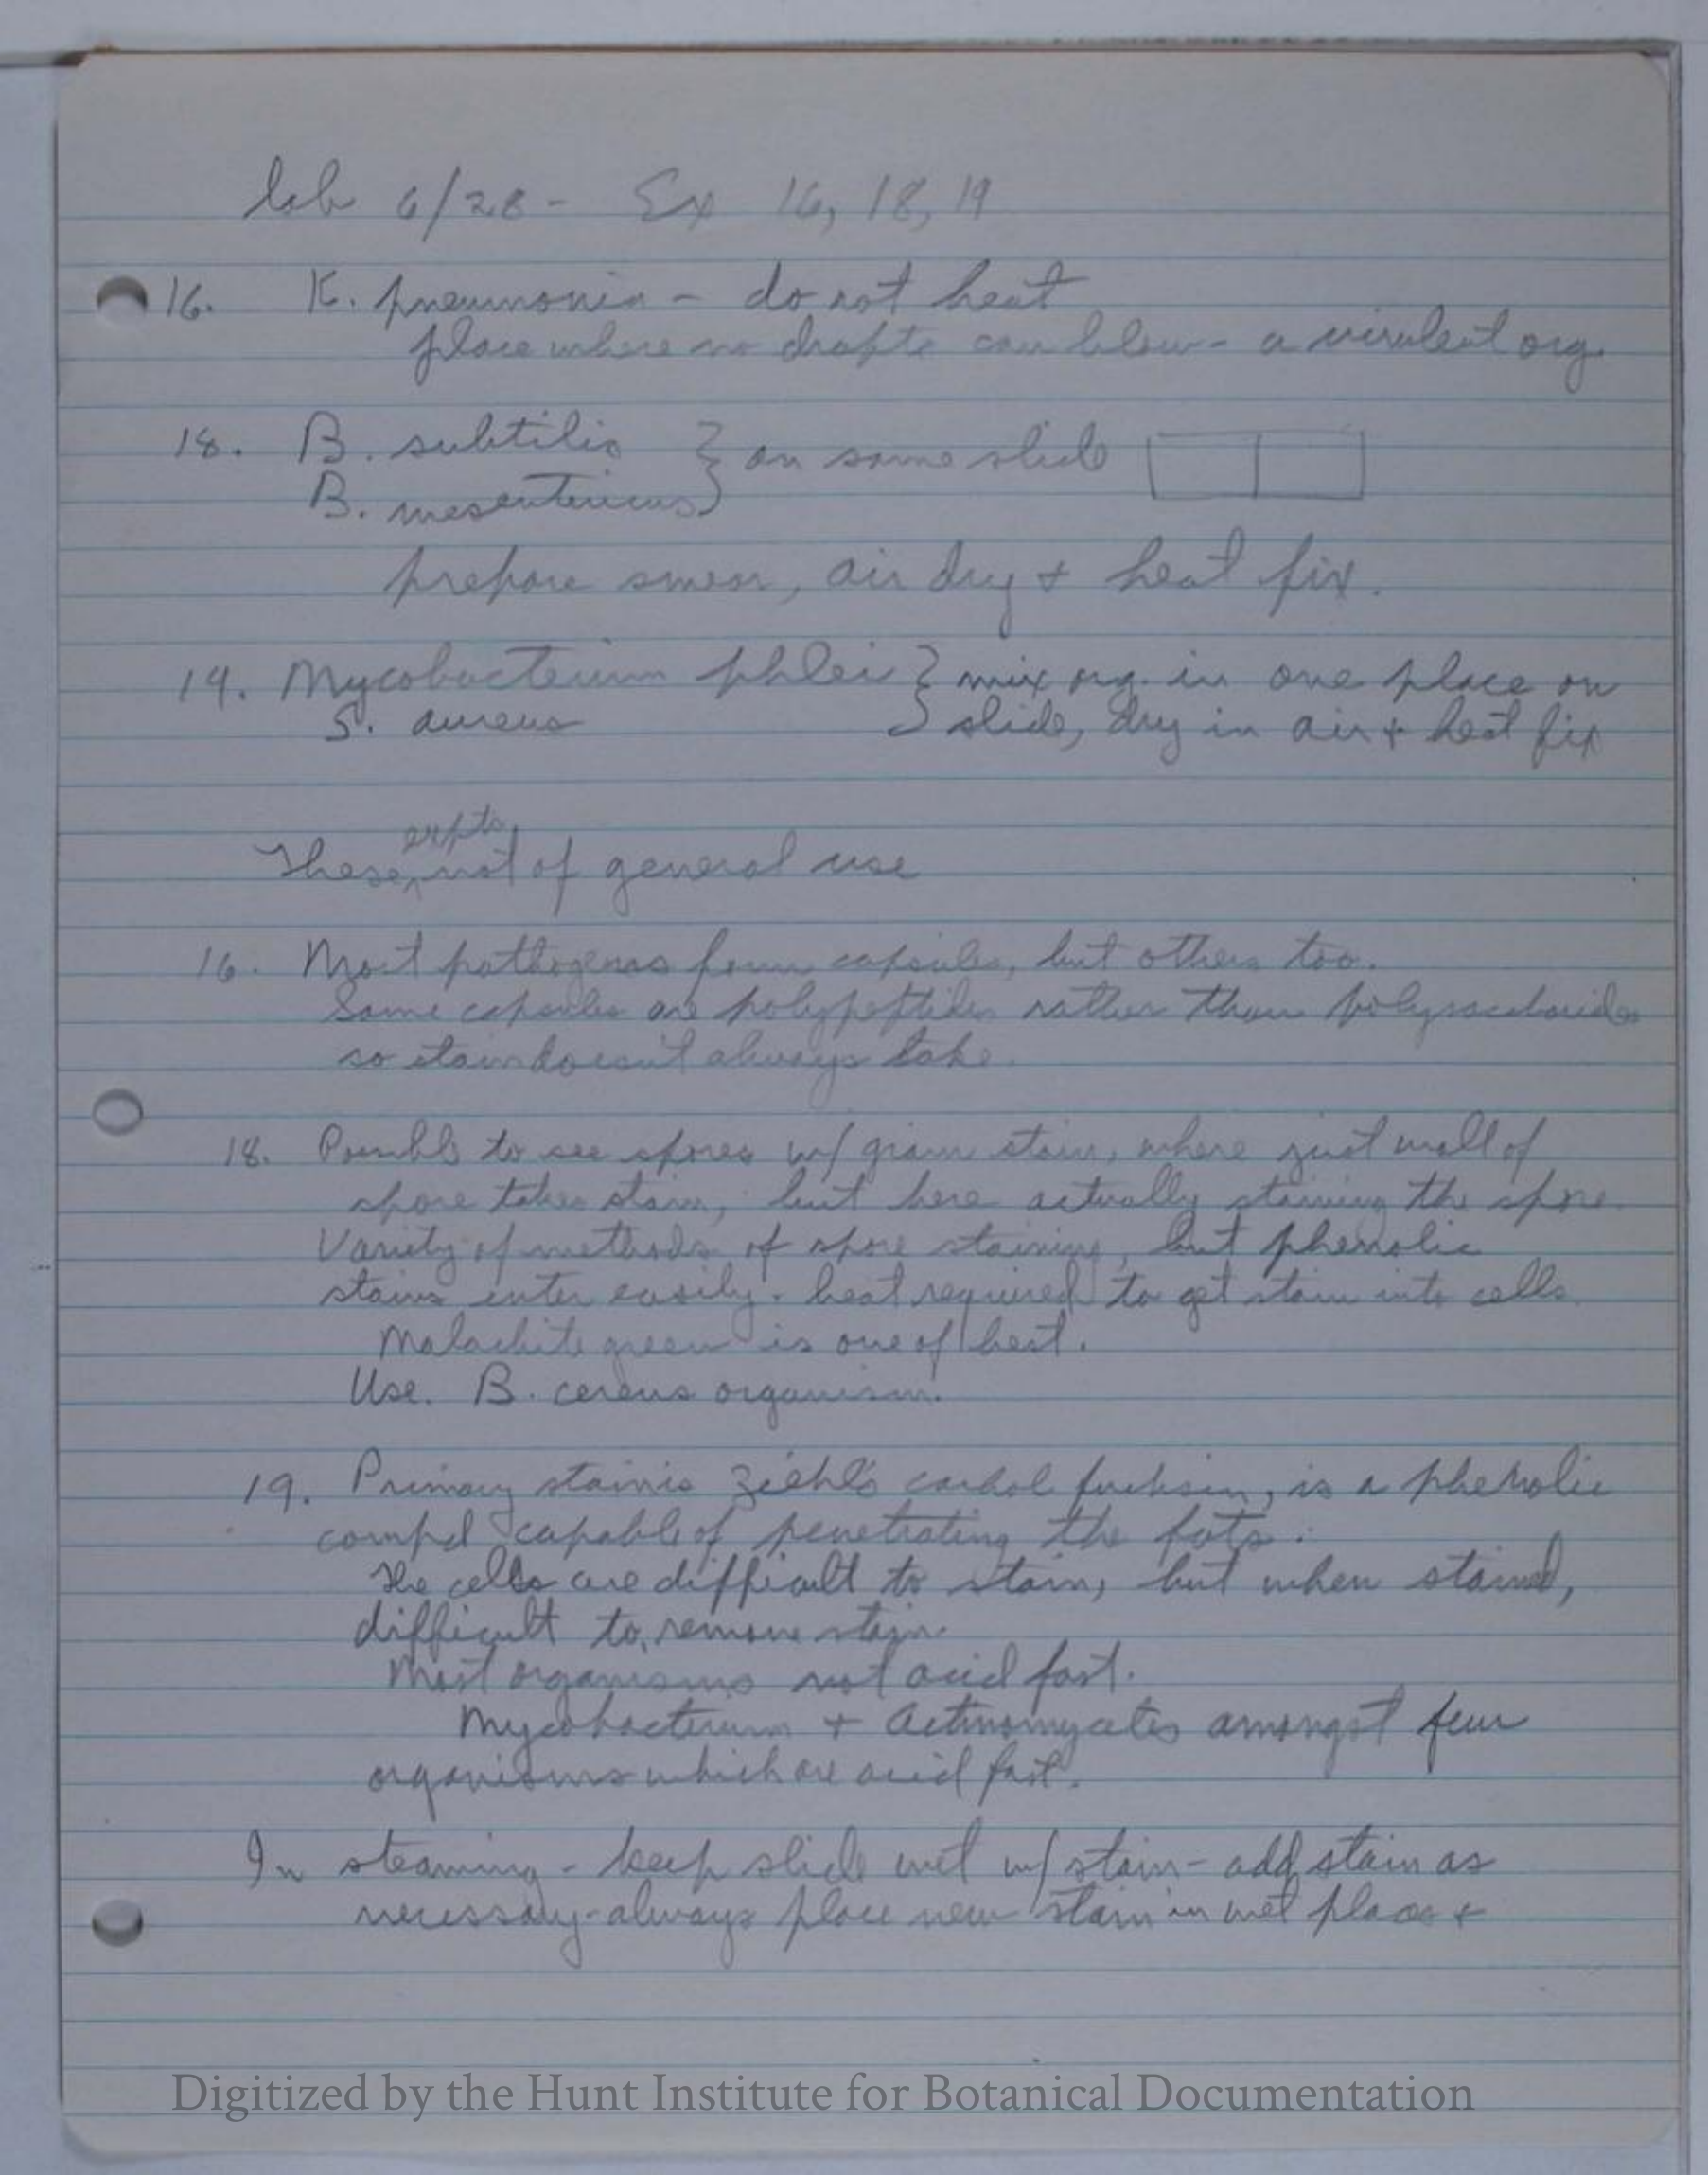 lab 6/28 - Ex 16, 18, 19
16. K. pneumonia - do not heat
place where no drafts can blow - a virulent org.
18. B. subtilis } on same slide
B. mesentericus
prepare smear, air dry + heat fix.
19. Mycobacterium phlei } mix org. in one place on
S. aureus } slide, dry in air + heat fix
expts
These ^ not of general use
16. Most pathogens form capsules, but others too.
Some capsules are polypeptides rather than polysaccharides
so stain doesn't always take.
18. Possible to see spores w/ gram stain, where just wall of
spore takes stain, but here actually staining the spore.
Variety of methods of spore staining, but phenolic
stains enter easily. heat required to get stain into cells.
Malachite green is one of best.
Use. B. cereus organism.
19. Primary stain is Ziehl's carbol fuchsin, is a phenolic
compd capable of penetrating the fats.
The cells are difficult to stain, but when stained,
difficult to remove stain.
Most organisms not acid fast.
Mycobacterium + Actinomycetes amongst few
organisms which are acid fast.
In steaming - keep slide wet w/ stain - add stain as
necessary - always place new stain in wet places +
Digitized by the Hunt Institute for Botanical Documentation